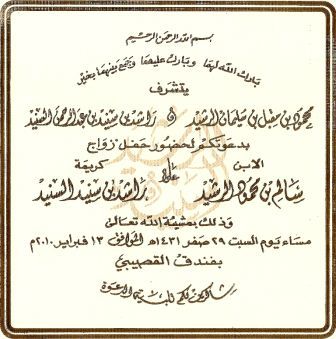 بسم الله الرحمن الرحيم
بارك الله لهما وبارك عليهما وجمع بينهما بخير
يتشرف
محمود بن مقبل بن سليمان الرشيد و راشد بن سنيد بن عبدالرحمن السنيد
بدعوتكم لحضور حفل زواج
الابن على كريمة
سالم بن محمود الرشيد راشد بن سنيد السنيد
وذلك بمشيئة الله تعالى
مساء يوم السبت ٢٩ صفر ١٤٣١هـ الموافق ١٣ فبراير ٢٠١٠م
بفندق القصيبي
شاكرين لكم تلبية الدعوة